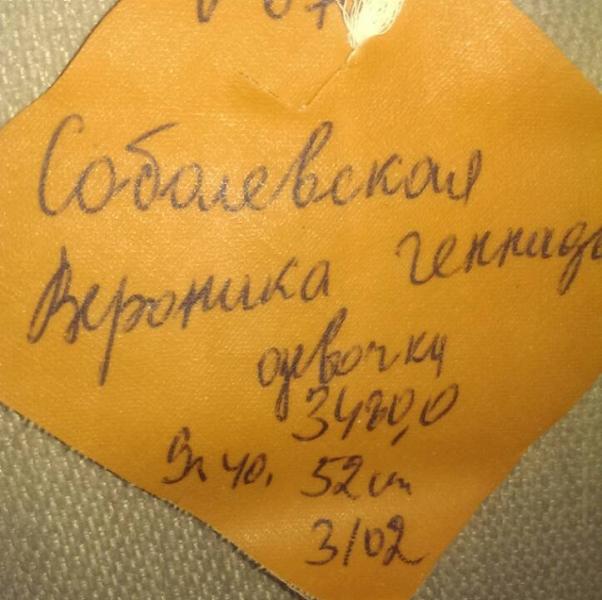 Соболевская
Вероника Геннадь
девочка
3480,0
52 см
3/02